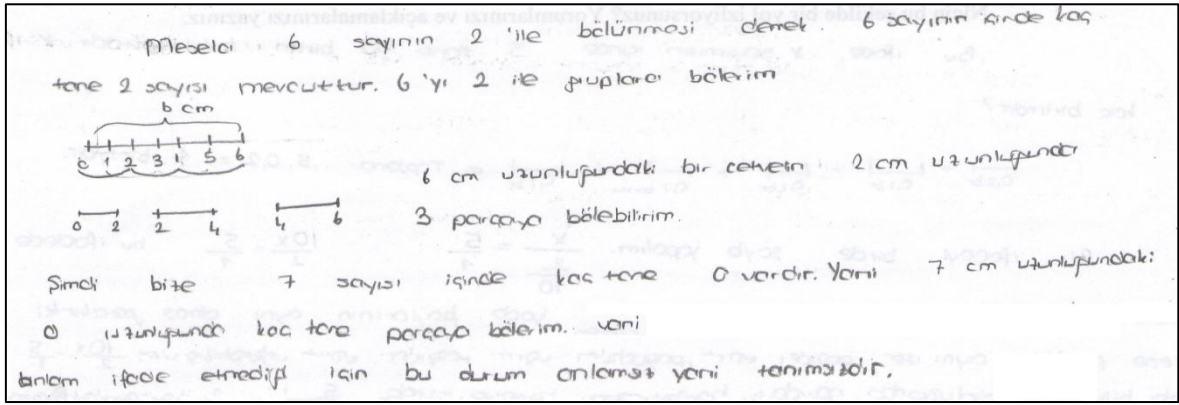 Mesela 6 sayının 2 'ile bölünmesi demek. 6 sayının içinde kaç
tane 2 sayısı mevcuttur. 6 'yı 2 ile gruplara bölerim
6 cm
0 1 2 3 4 5 6
6 cm uzunluğundaki bir cetvelin 2 cm uzunluğunda
0 2 2 4 4 6 3 parçaya bölebilirim.
Şimdi bize 7 sayısı içinde kaç tane 0 vardır. Yani 7 cm uzunluğundaki
0 uzunluğunda kaç tane parçaya bölerim. yani
anlam ifade etmediği için bu durum anlamsız yani tanımsızdır.